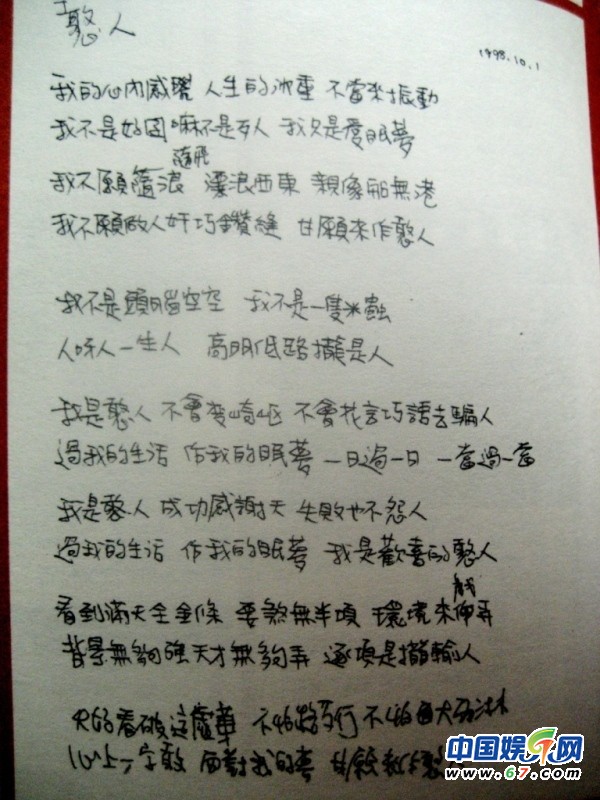 憨人
1998.10.1
我的心內感覺 人生的沈重 不當來振動
我不是好囝 嘛不是歹人 我只是愛眠夢
隨飛
我不願隨浪 漂浪西東 親像船無港
我不願做人奸巧鑽縫 甘願來作憨人
我不是頭腦空空 我不是一隻米蟲
人呀人一生人 高明低路攏是人
我是憨人 不會變崎岖 不會花言巧語去騙人
過我的生活 作我的眠夢 一日過一日 一當過一當
我是憨人 成功感謝天 失敗也不怨人
過我的生活 作我的眠夢 我是歡喜的憨人
看到滿天全金條 要煞無半項 環境來
背景無夠強 天才無夠弄 逐項是攏輸人
只好看破這虛華 不
心上一字敢 面對我的夢 甘願
中国娱乐网
www.67.com